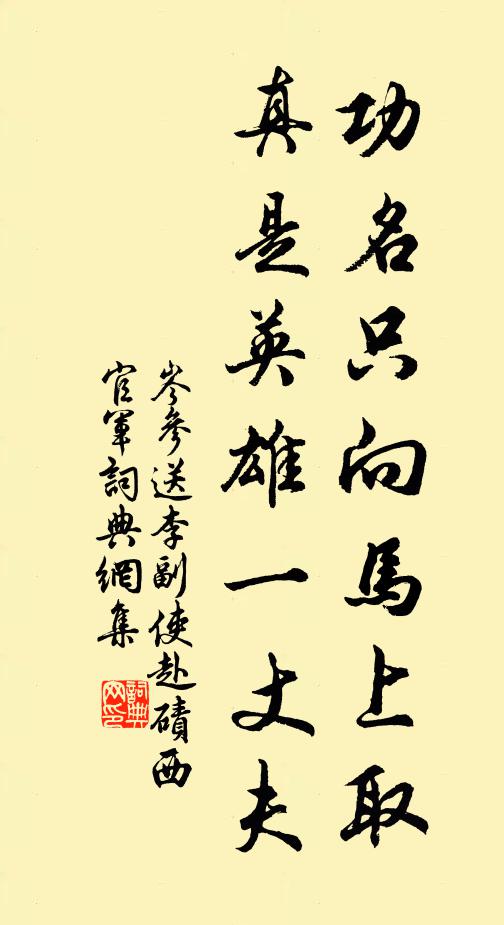 功名只向馬上取
真是英雄一丈夫
岑參送李副使赴磧西
官軍詞典網集
詞典
网印